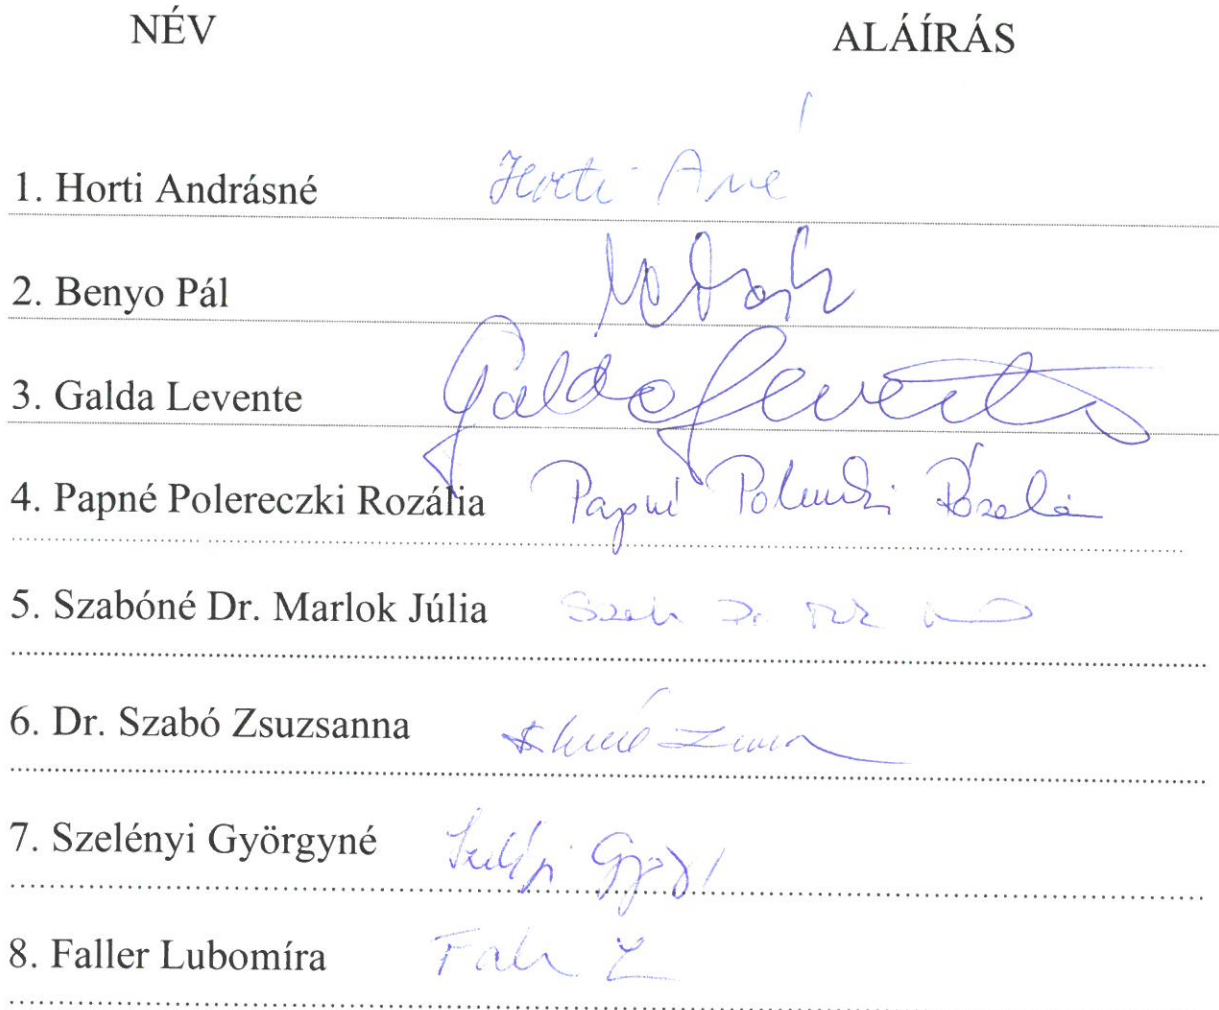 NÉV ALÁÍRÁS
1. Horti Andrásné Horti Ané
2. Benyo Pál
3. Galda Levente Galda Levente
4. Papné Polereczki Rozália Papné Rozália
5. Szabóné Dr. Marlok Júlia
6. Dr. Szabó Zsuzsanna
7. Szelényi Györgyné
8. Faller Lubomíra